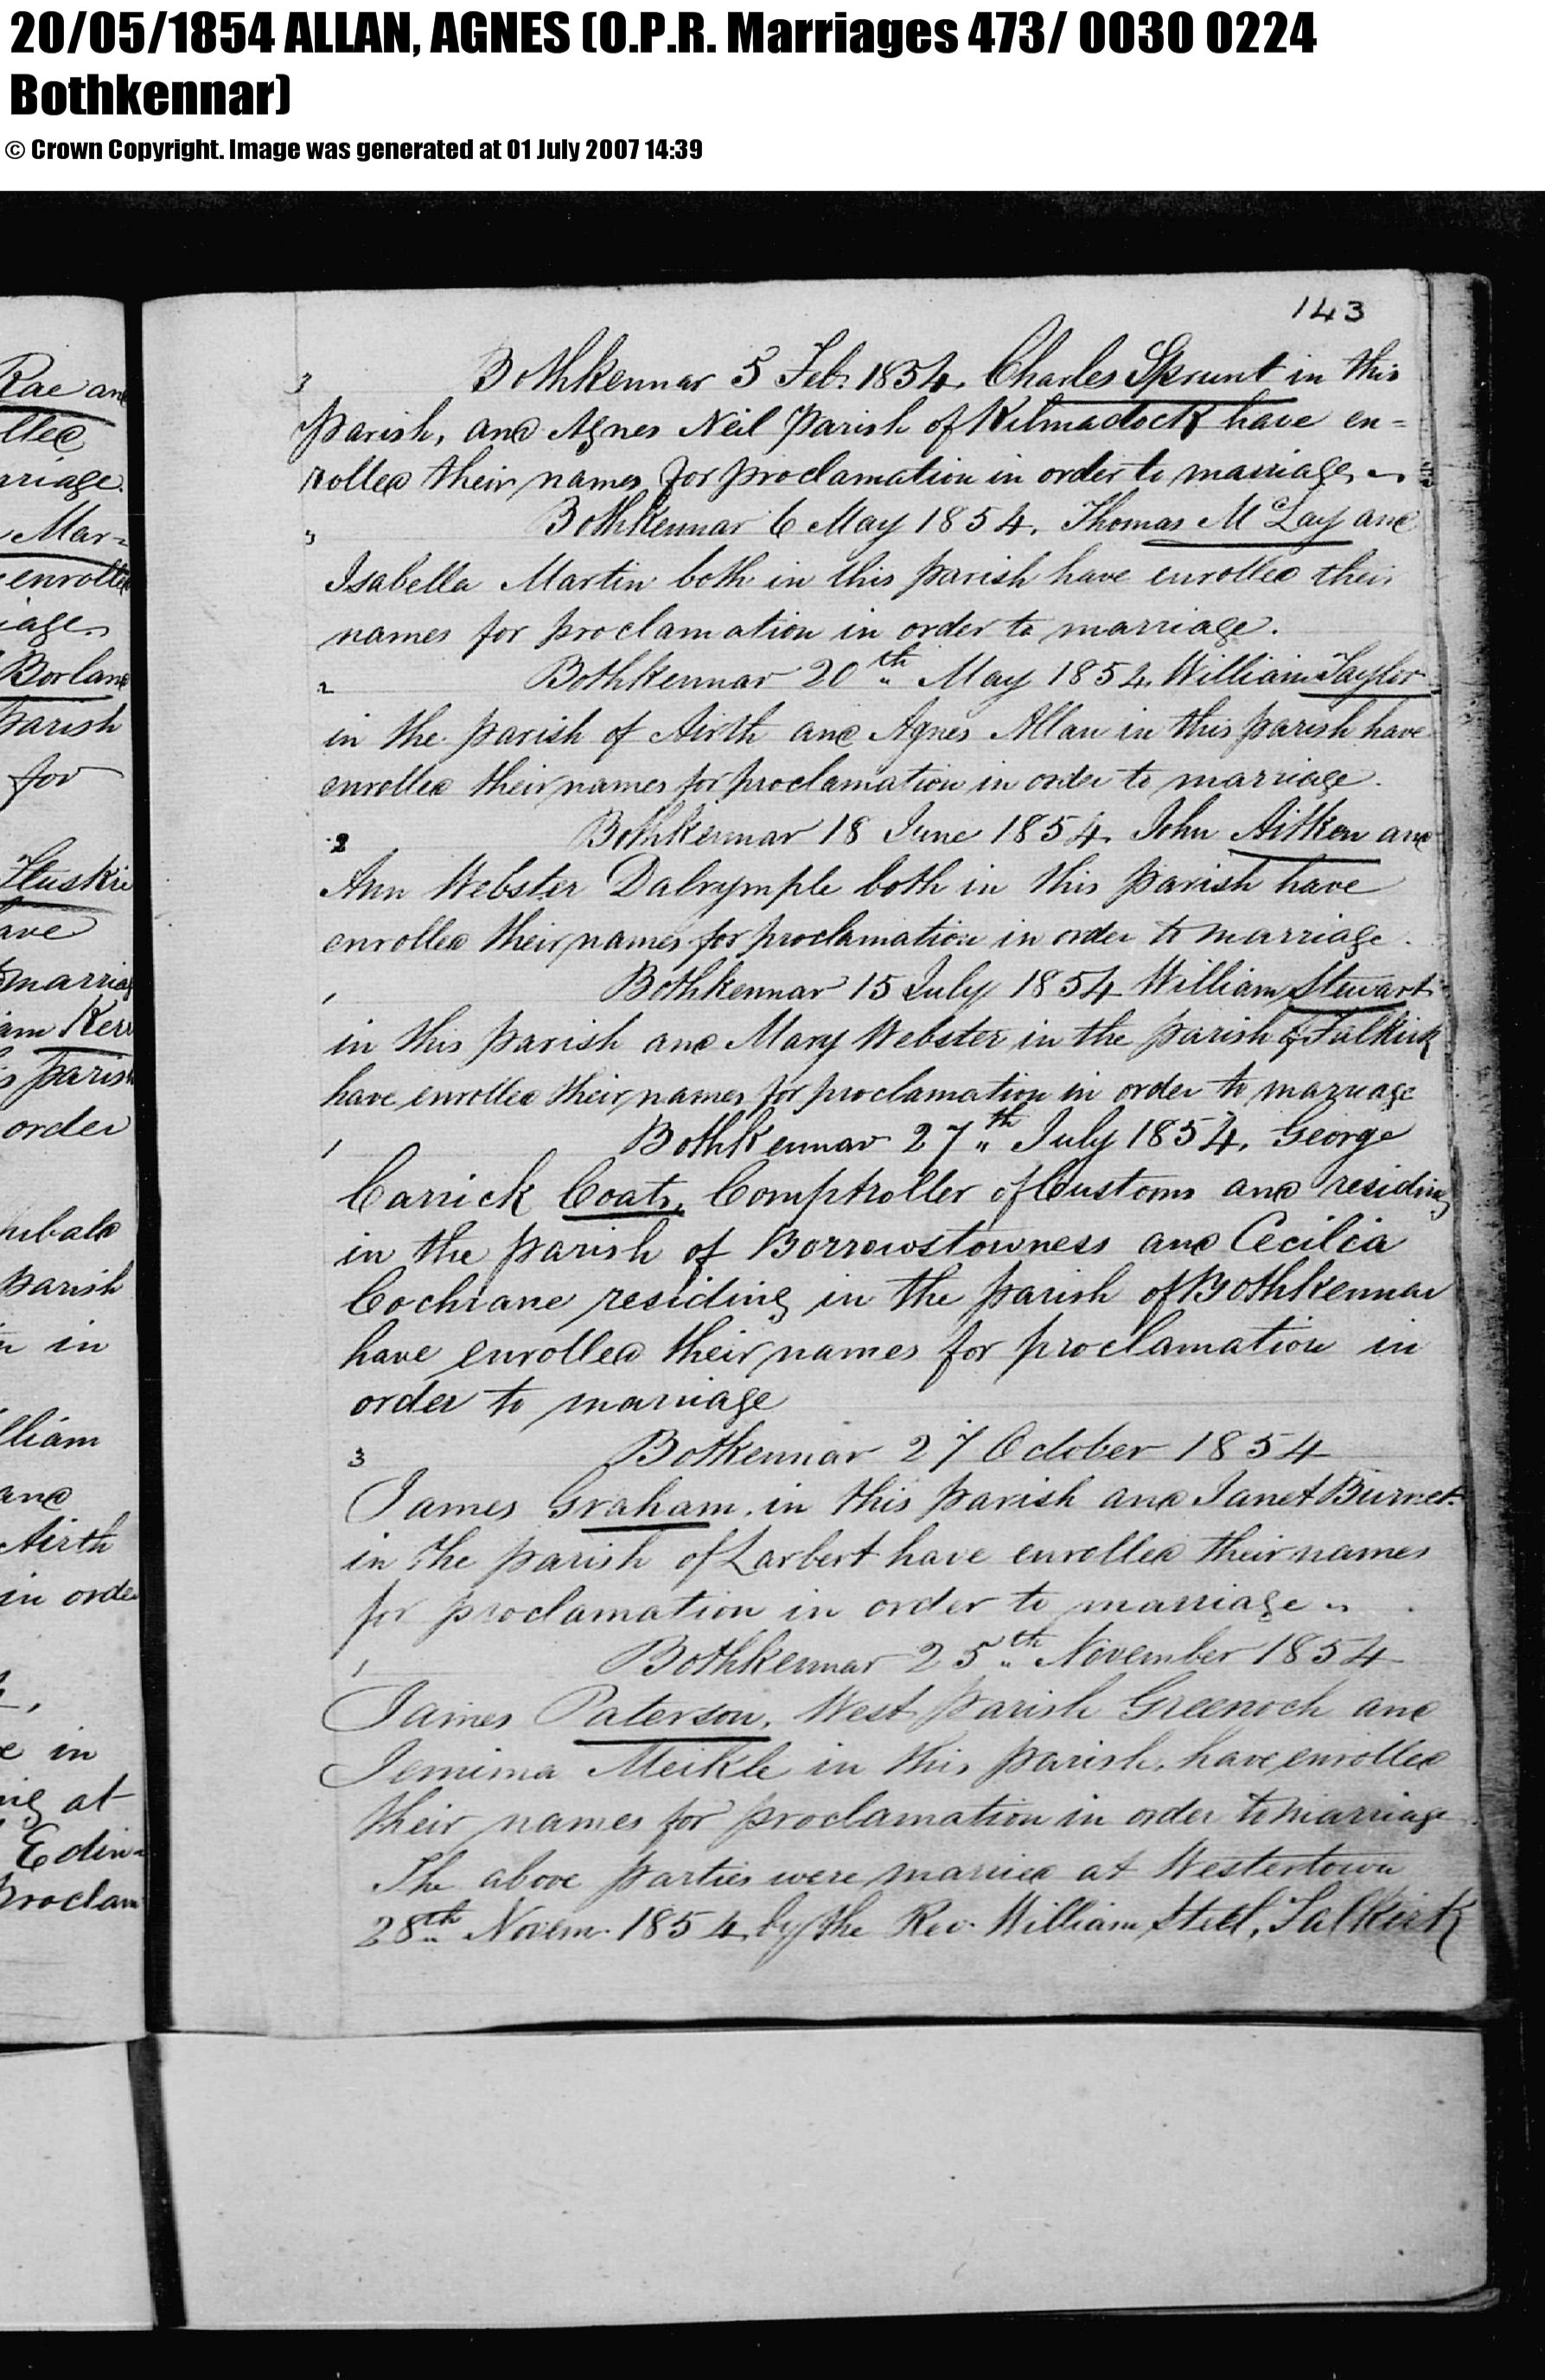 20/05/1854 ALLAN, AGNES (O.P.R. Marriages 473/ 0030 0224
Bothkennar)
© Crown Copyright. Image was generated at 01 July 2007 14:39
Rae and
lled
rriage.
Mar-
enrolled
iage.
Borland
Parish
for
Huskie
ave
marriag
am Kerr
s parish
order
hibald
parish
in
lliam
and
Airth
in order
e in
ng at
Edin-
Proclam
143
3 Bothkennar 5 Feb. 1854. Charles Sprunt in this
Parish, and Agnes Neil Parish of Kilmadock have en=
rolled their names for proclamation in order to marriage.
3 Bothkennar 6 May 1854. Thomas McLay and
Isabella Martin both in this parish have enrolled their
names for proclamation in order to marriage.
2 Bothkennar 20th May 1854. William Taylor
in the parish of Airth and Agnes Allan in this parish have
enrolled their names for proclamation in order to marriage.
2 Bothkennar 18 June 1854. John Aitken and
Ann Webster Dalrymple both in this parish have
enrolled their names for proclamation in order to marriage.
1 Bothkennar 15 July 1854 William Stewart
in this parish and Mary Webster in the parish of Falkirk
have enrolled their names for proclamation in order to marriage
1 Bothkennar 27th July 1854. George
Carrick Coats, Comptroller of Customs and residing
in the parish of Borrowstowness and Cecilia
Cochrane residing in the parish of Bothkennar
have enrolled their names for proclamation in
order to marriage
3 Bothkennar 27 October 1854
James Graham. in this parish and Janet Burnet.
in the parish of Larbert have enrolled their names
for proclamation in order to marriage.
1 Bothkennar 25th November 1854
James Paterson, West parish Greenoch and
Jemima Meikle in this parish, have enrolled
their names for proclamation in order to marriage
The above parties were married at Westertown
28th Novem. 1854 by the Rev. William Steel, Falkirk